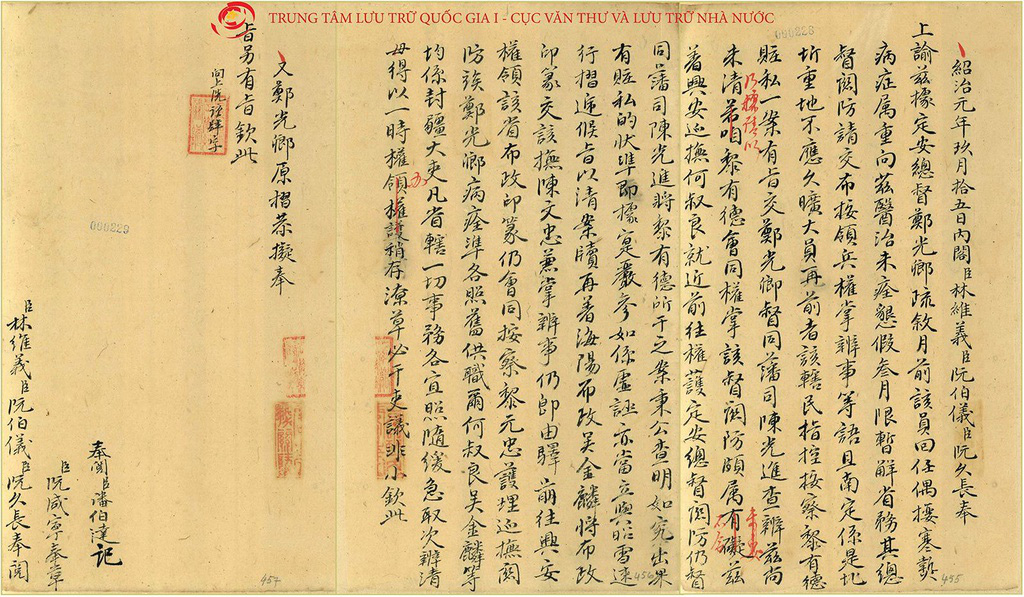 TRUNG TÂM LƯU TRỮ QUỐC GIA I - CỤC VĂN THƯ VÀ LƯU TRỮ NHÀ NƯỚC
紹治元年玖月拾五日內閣臣林維義臣阮伯儀臣阮久長奉
上諭茲據定安總督鄭光卿疏敘月前該員回任偶搜寒熱
病症属重向茲醫治未痊懇假叁月限暫觧省務其總
督関防請交布按領兵權掌辦事等語且南定係是北
圻重地不應久曠大員再前者該轄民指控按察黎有德
賍私一案有旨交鄭光卿督同藩司陳光進查辦茲尚
未清若咱黎有德會同權掌該督関防頗属有礙茲
著興安巡撫何叔良就近前往權護定安總督関防仍督
同藩司陳光進將黎有德所干之案秉公查明如究出果
有賍私的状準即據寔嚴參如係虛誣亦當立與昭雪速
行摺㢠候旨以清案牘再著海陽布政吳金麟將布政
印篆交該撫陳文忠兼掌辦事仍即由驛前往興安
權領該省布政印篆仍會同按察黎元忠護理巡撫関
防俟鄭光卿病痊準各照舊供職爾何叔良吳金麟等
均係封疆大吏凡省轄一切事務各宜照隨緩急取次辦清
毋得以一時權領權護稍存潦草必干吏議非小欽此
又鄭光卿原摺恭擬奉
旨另有旨欽此
奉閱臣潘伯達記
臣阮咸寧奉章
臣林維義臣阮伯儀臣阮久長奉閱
000228
000229
455
456
457